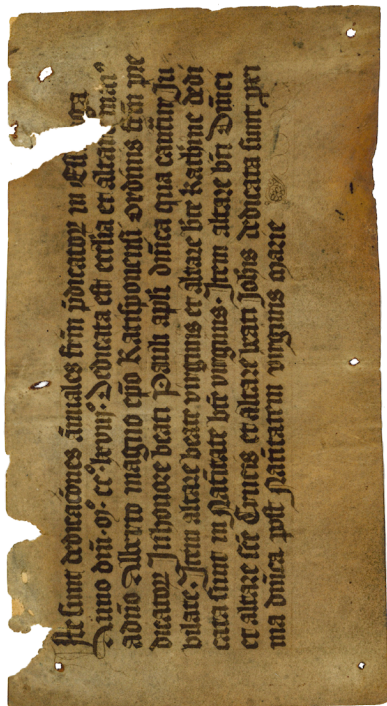 Hee sunt dedicaciones ānuales frm̄ p̄dicatoꝝ in Eſſ ga
Anno dnī . mͦ . ccͦ . lxviijͦ . Dedicata eſt eccleſia et altare maiꝰ
a dn̄o Alberto magno ep̄o Ratiſponenſi ordinis frm̄ pre
dicatoꝝ In honore beati Pauli apl̄i dn̄ica qua cantatur Ju
bilate . Item altare beate virginis et altare bt̄e katherine dedi
cata ſunt in Natiuitate bt̄e virginis . Item altare bt̄i Dn̄ici
et altare ſc̄e Crucis et altare beati Joh̄is dedicata ſunt pri
ma dn̄ica poſt Natiuitatem virginis marie